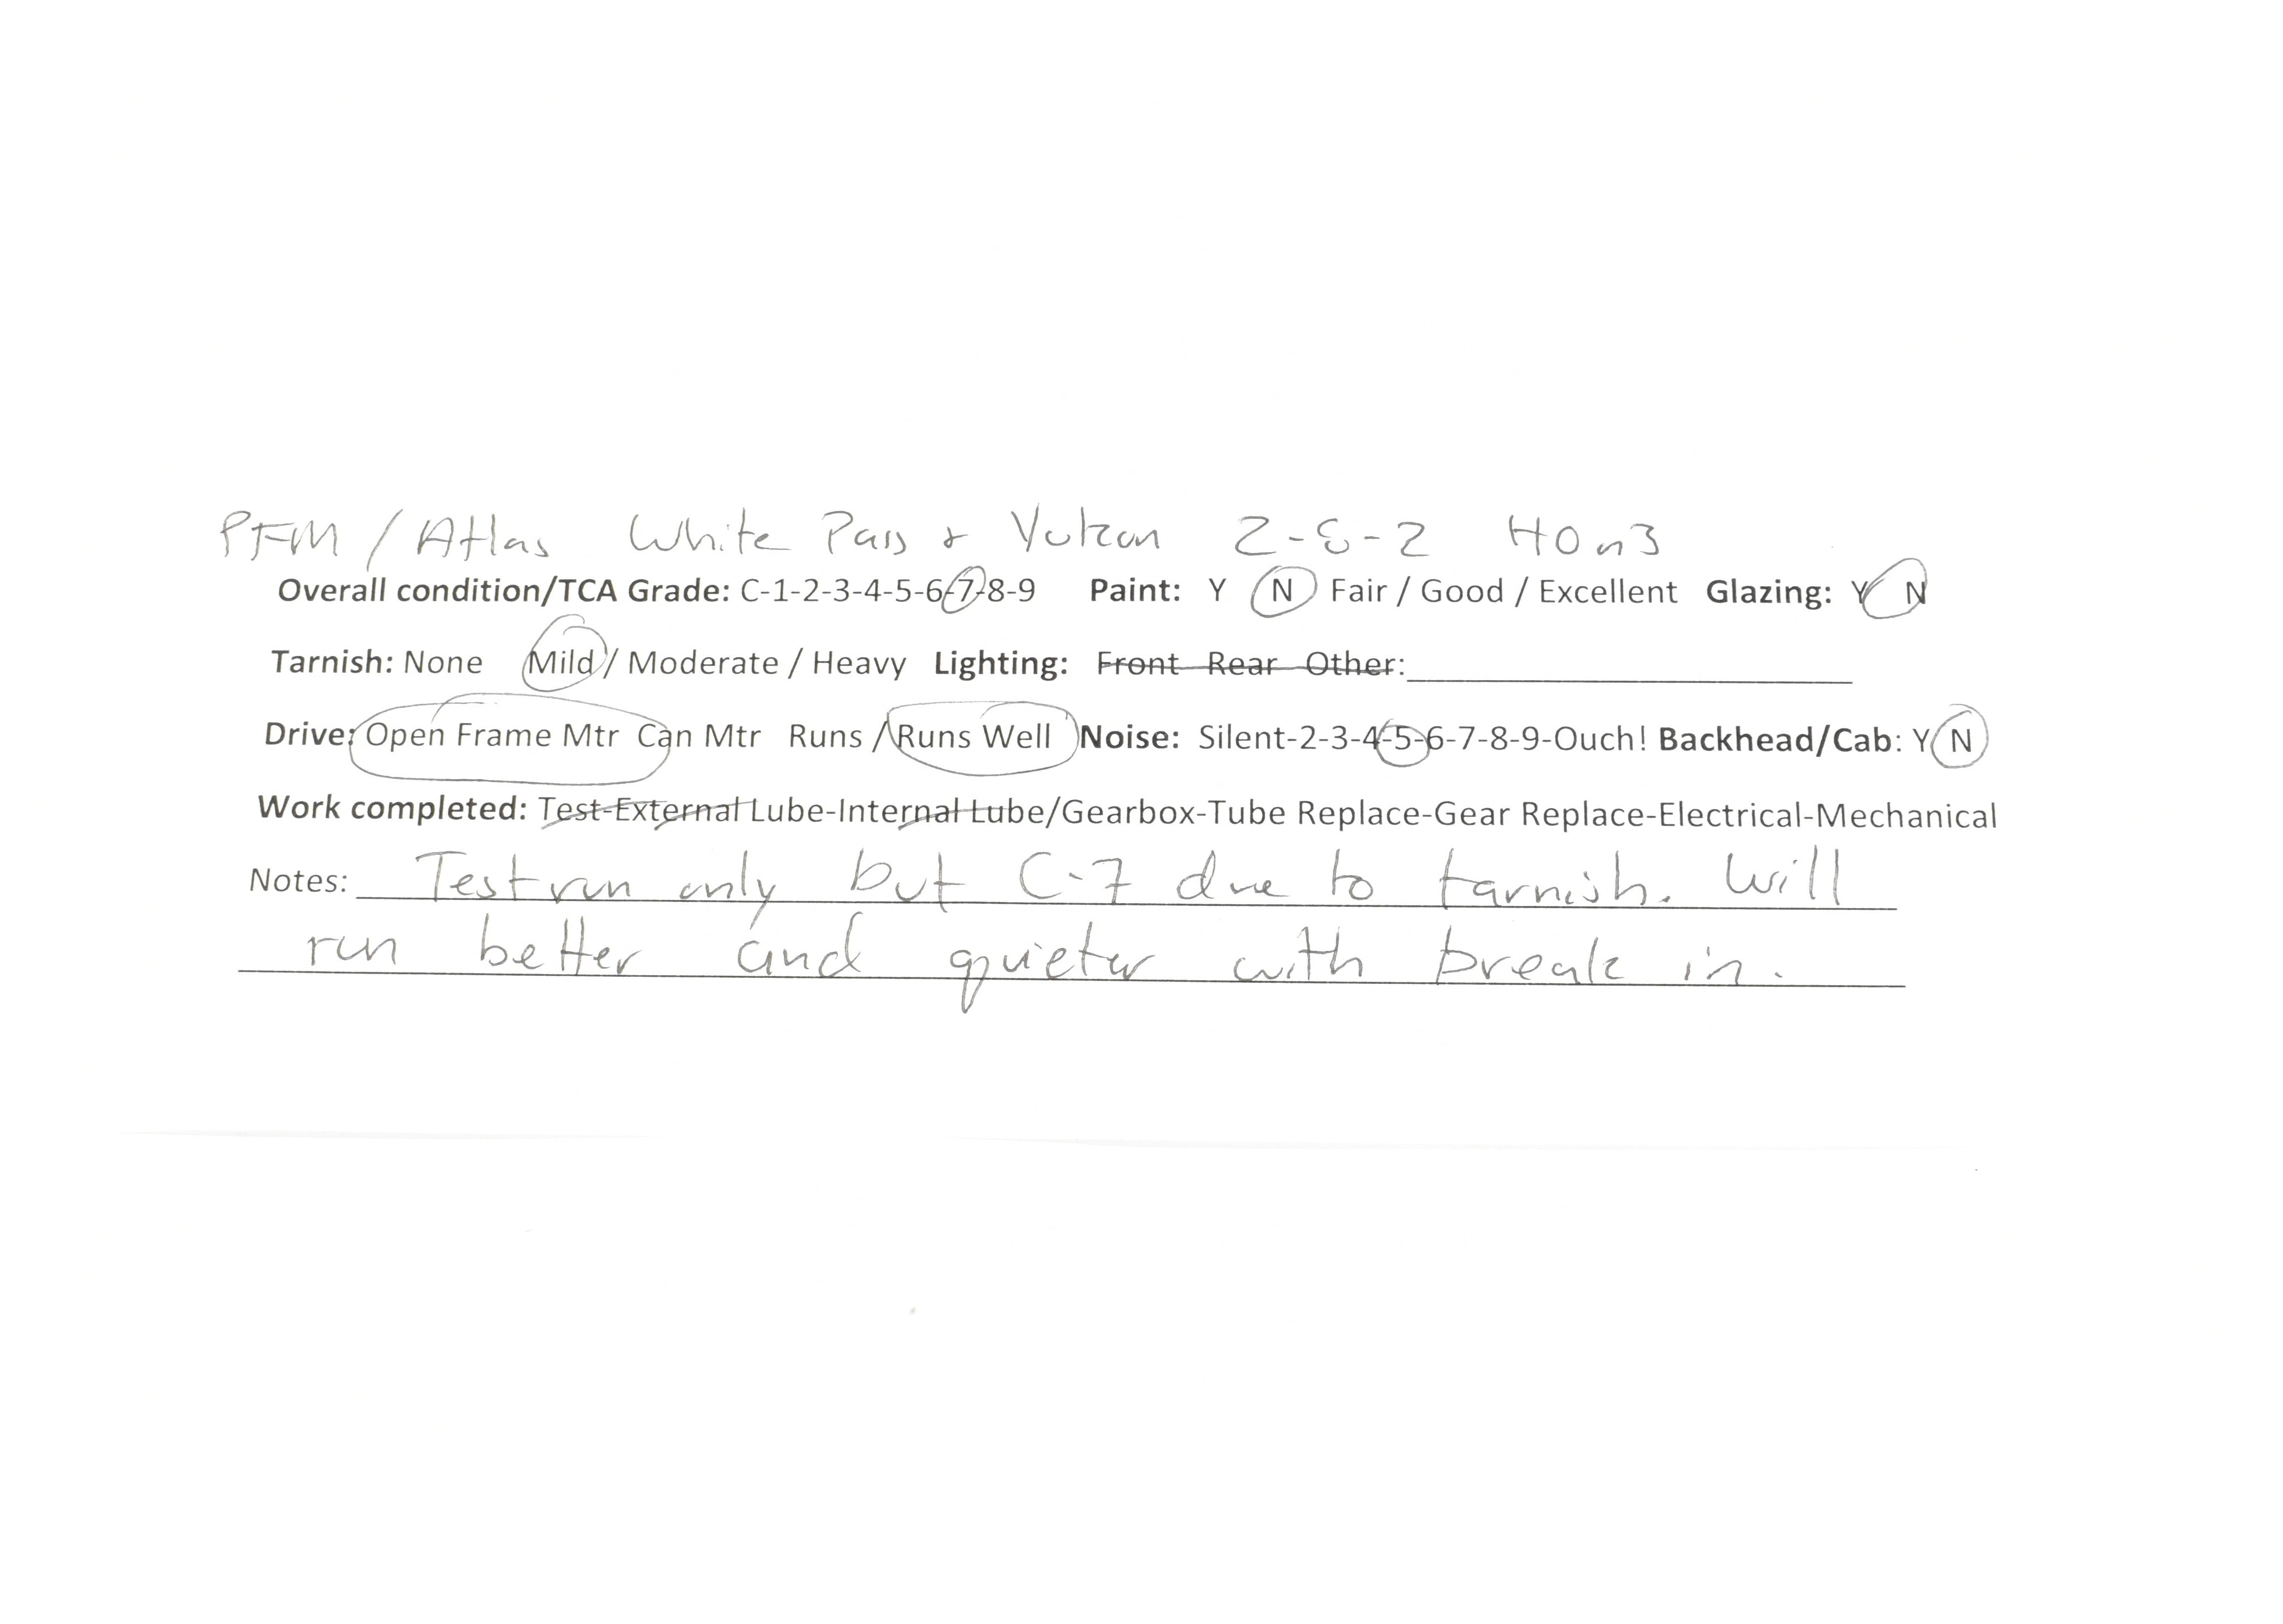 PFM / Atlas White Pass & Yukon 2-8-2 HOn3
Overall condition/TCA Grade: C-1-2-3-4-5-6-7-8-9 Paint: Y N Fair / Good / Excellent Glazing: Y N
Tarnish: None Mild / Moderate / Heavy Lighting: Front Rear Other:
Drive: Open Frame Mtr Can Mtr Runs / Runs Well Noise: Silent-2-3-4-5-6-7-8-9-Ouch! Backhead/Cab: Y N
Work completed: Test-External Lube-Internal Lube/Gearbox-Tube Replace-Gear Replace-Electrical-Mechanical
Notes: Test run only but C-7 due to tarnish. Will
run better and quieter with break in.